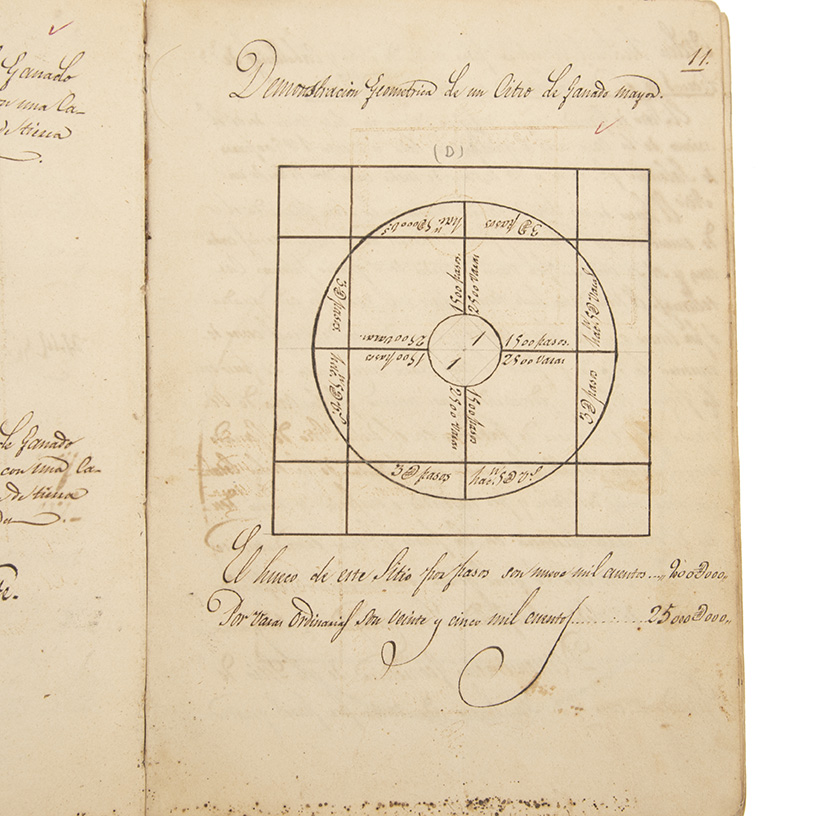 Ganado
con una Ca-
de tierra
de Ganado
con una Ca-
de tierra
11.
Demonstracion Geometrica de un Citio de Ganado mayor.
(D)
3@ pasos
1500 pasos.
2500 Varas
3@ pasos
2500 Varas.
1500 pasos
1
1
1500 pasos.
2500 Varas
3@ pasos
1500 pasos
2500 Varas
3@ pasos
El hueco de este Sitio por pasos son nueve mil cuentos
Por Varas Ordinarias son Veinte y cinco mil cuentos